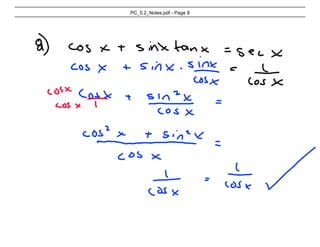 PC_5.2_Notes.pdf - Page 8
a) cos x + sinx tanx = sec x
cos x + sinx · sinx/cosx = 1/cos x
cosx/cosx cosx/1 + sin²x/cos x =
(cos² x + sin² x)/cos x =
1/cos x = 1/cosx ✓